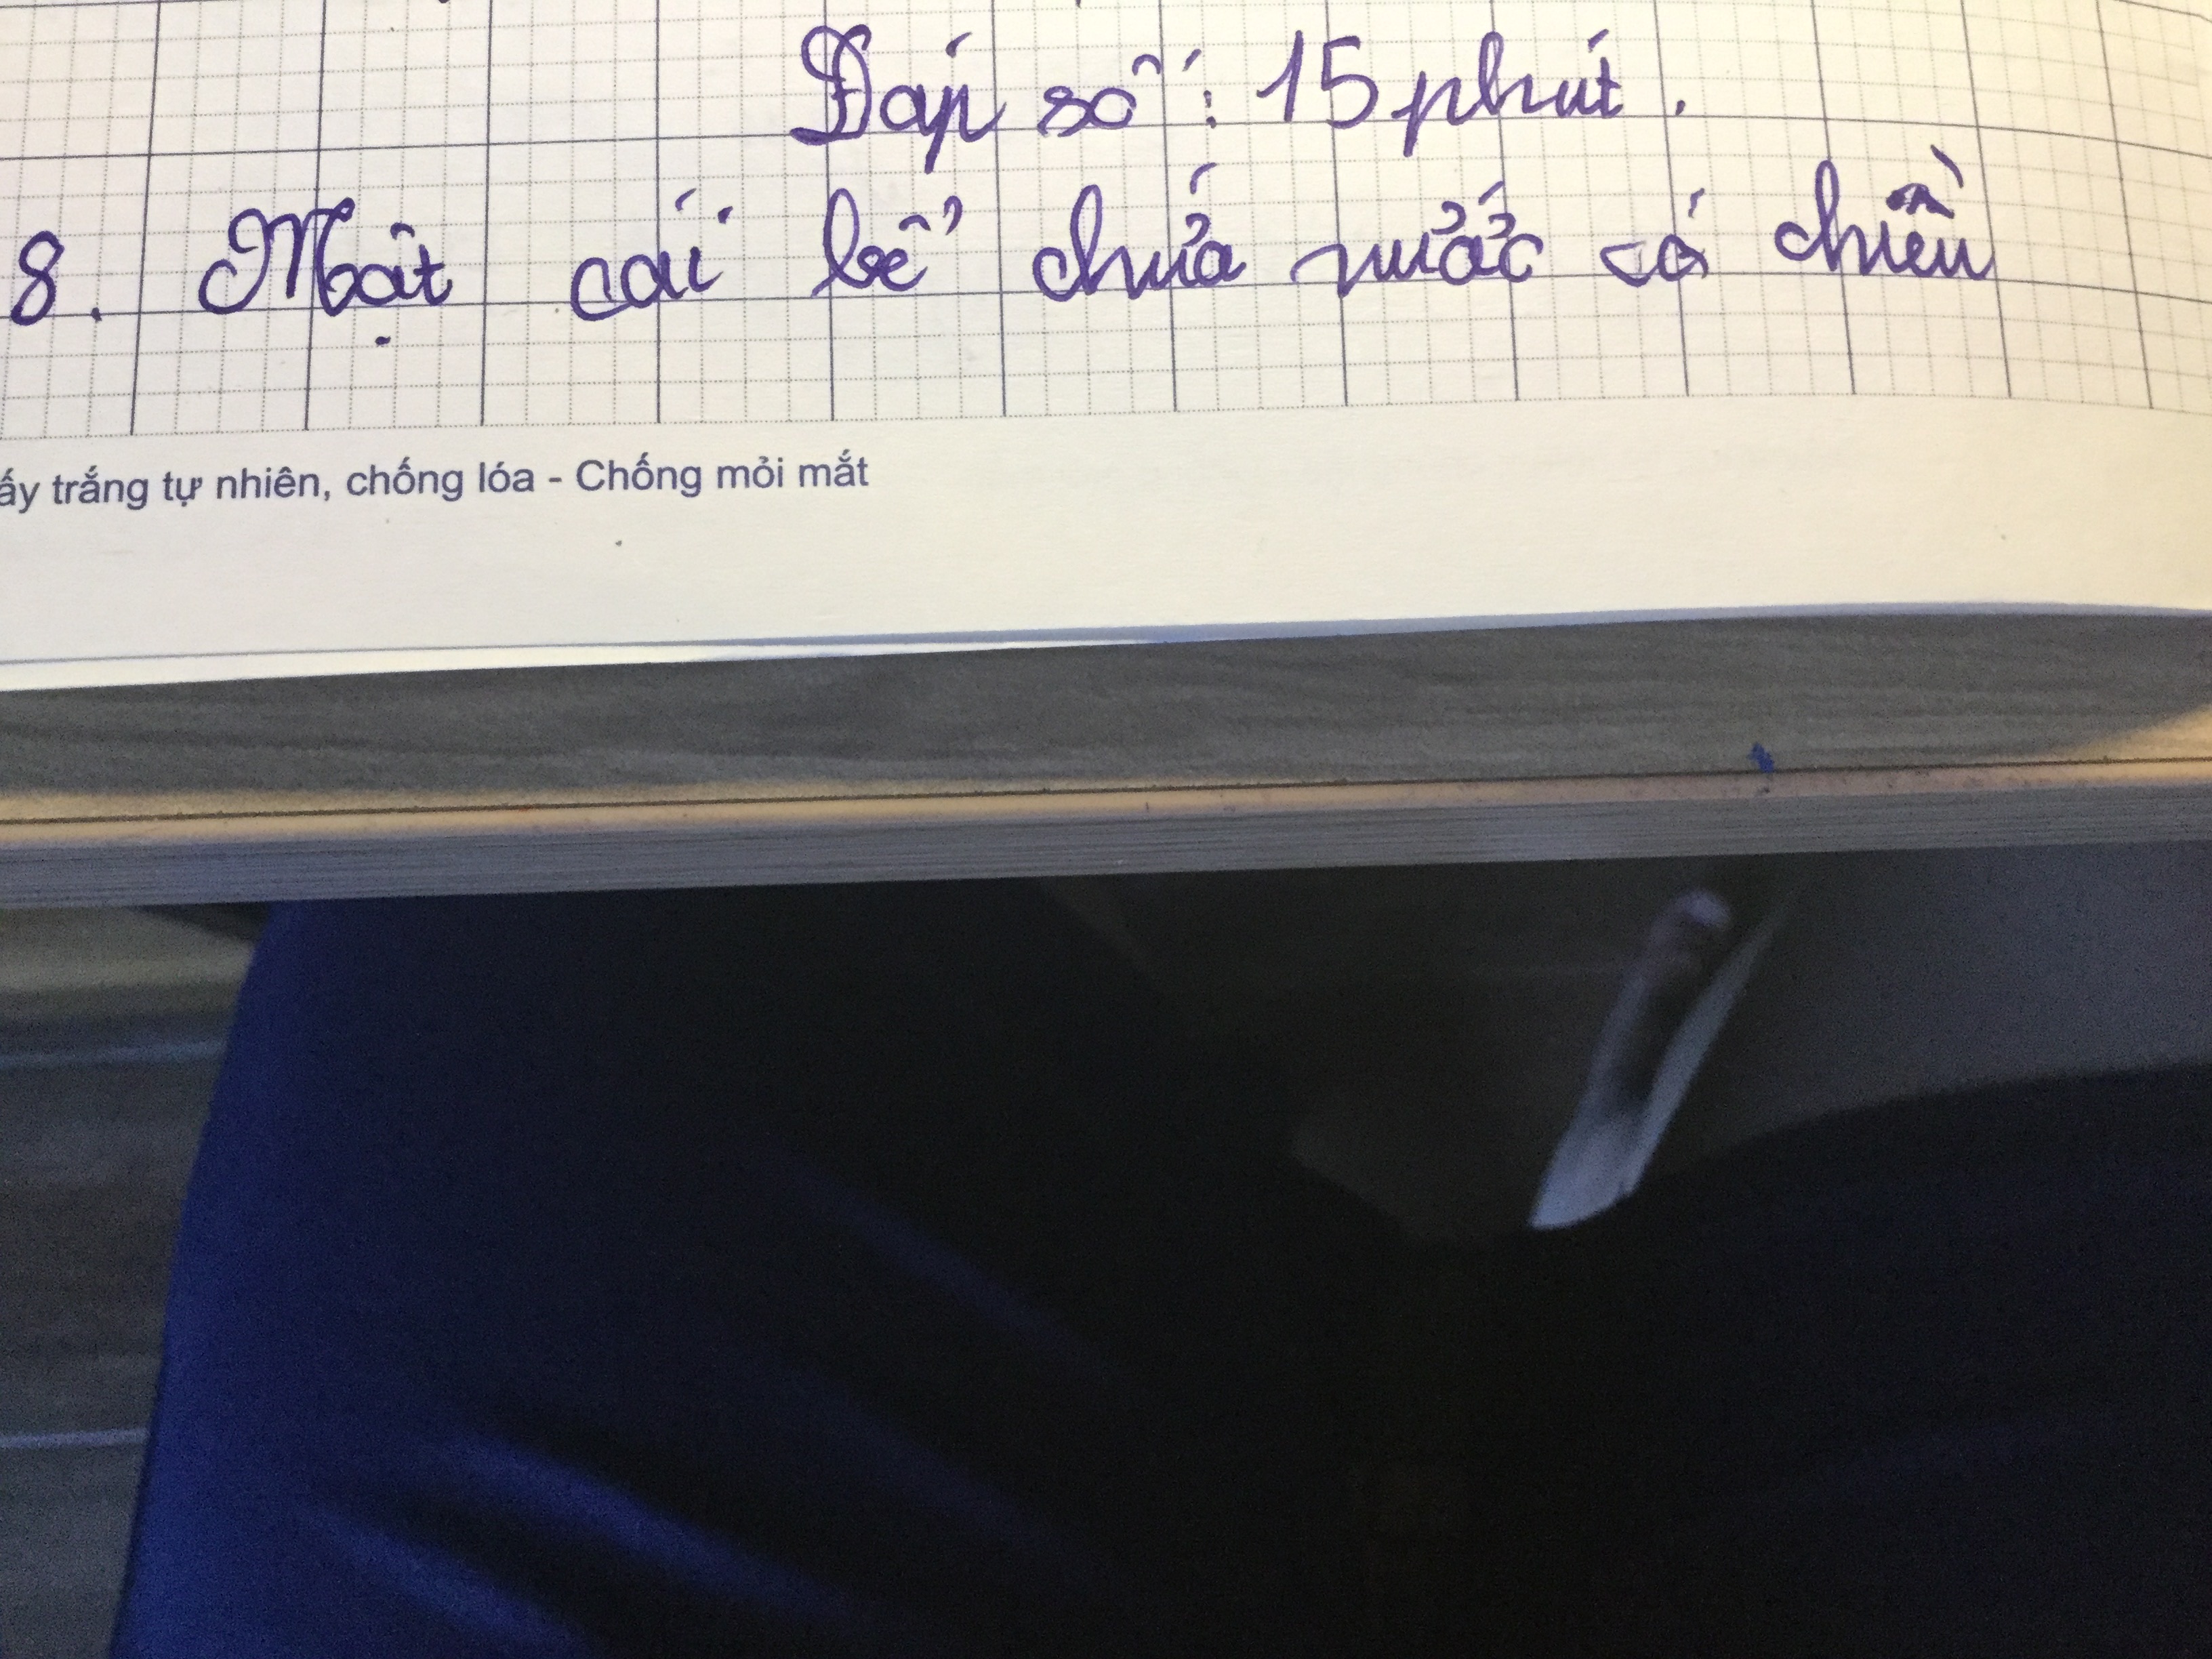 Đáp số : 15 phút .
8. Một cái bể chứa nước có chiều
ấy trắng tự nhiên, chống lóa - Chống mỏi mắt